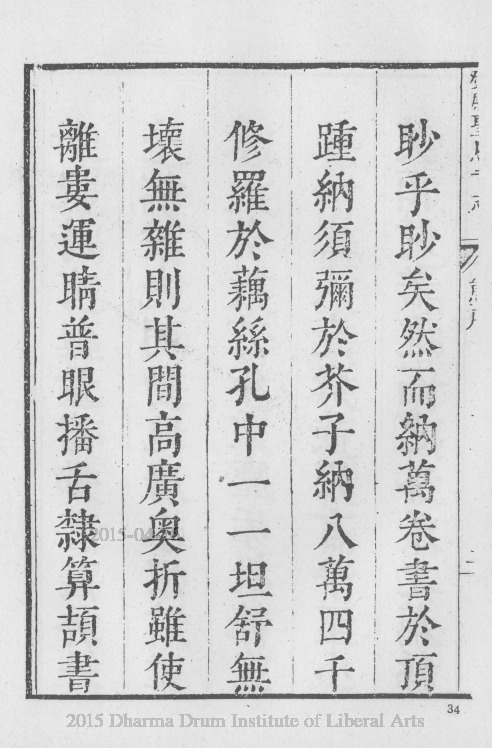 眇乎眇矣然而納萬卷書於頂
踵納須彌於芥子納八萬四千
修羅於藕絲孔中一一坦舒無
壞無雜則其間高廣奧折雖使
離婁運睛普眼播舌隸算頡書
二
34
2015 Dharma Drum Institute of Liberal Arts